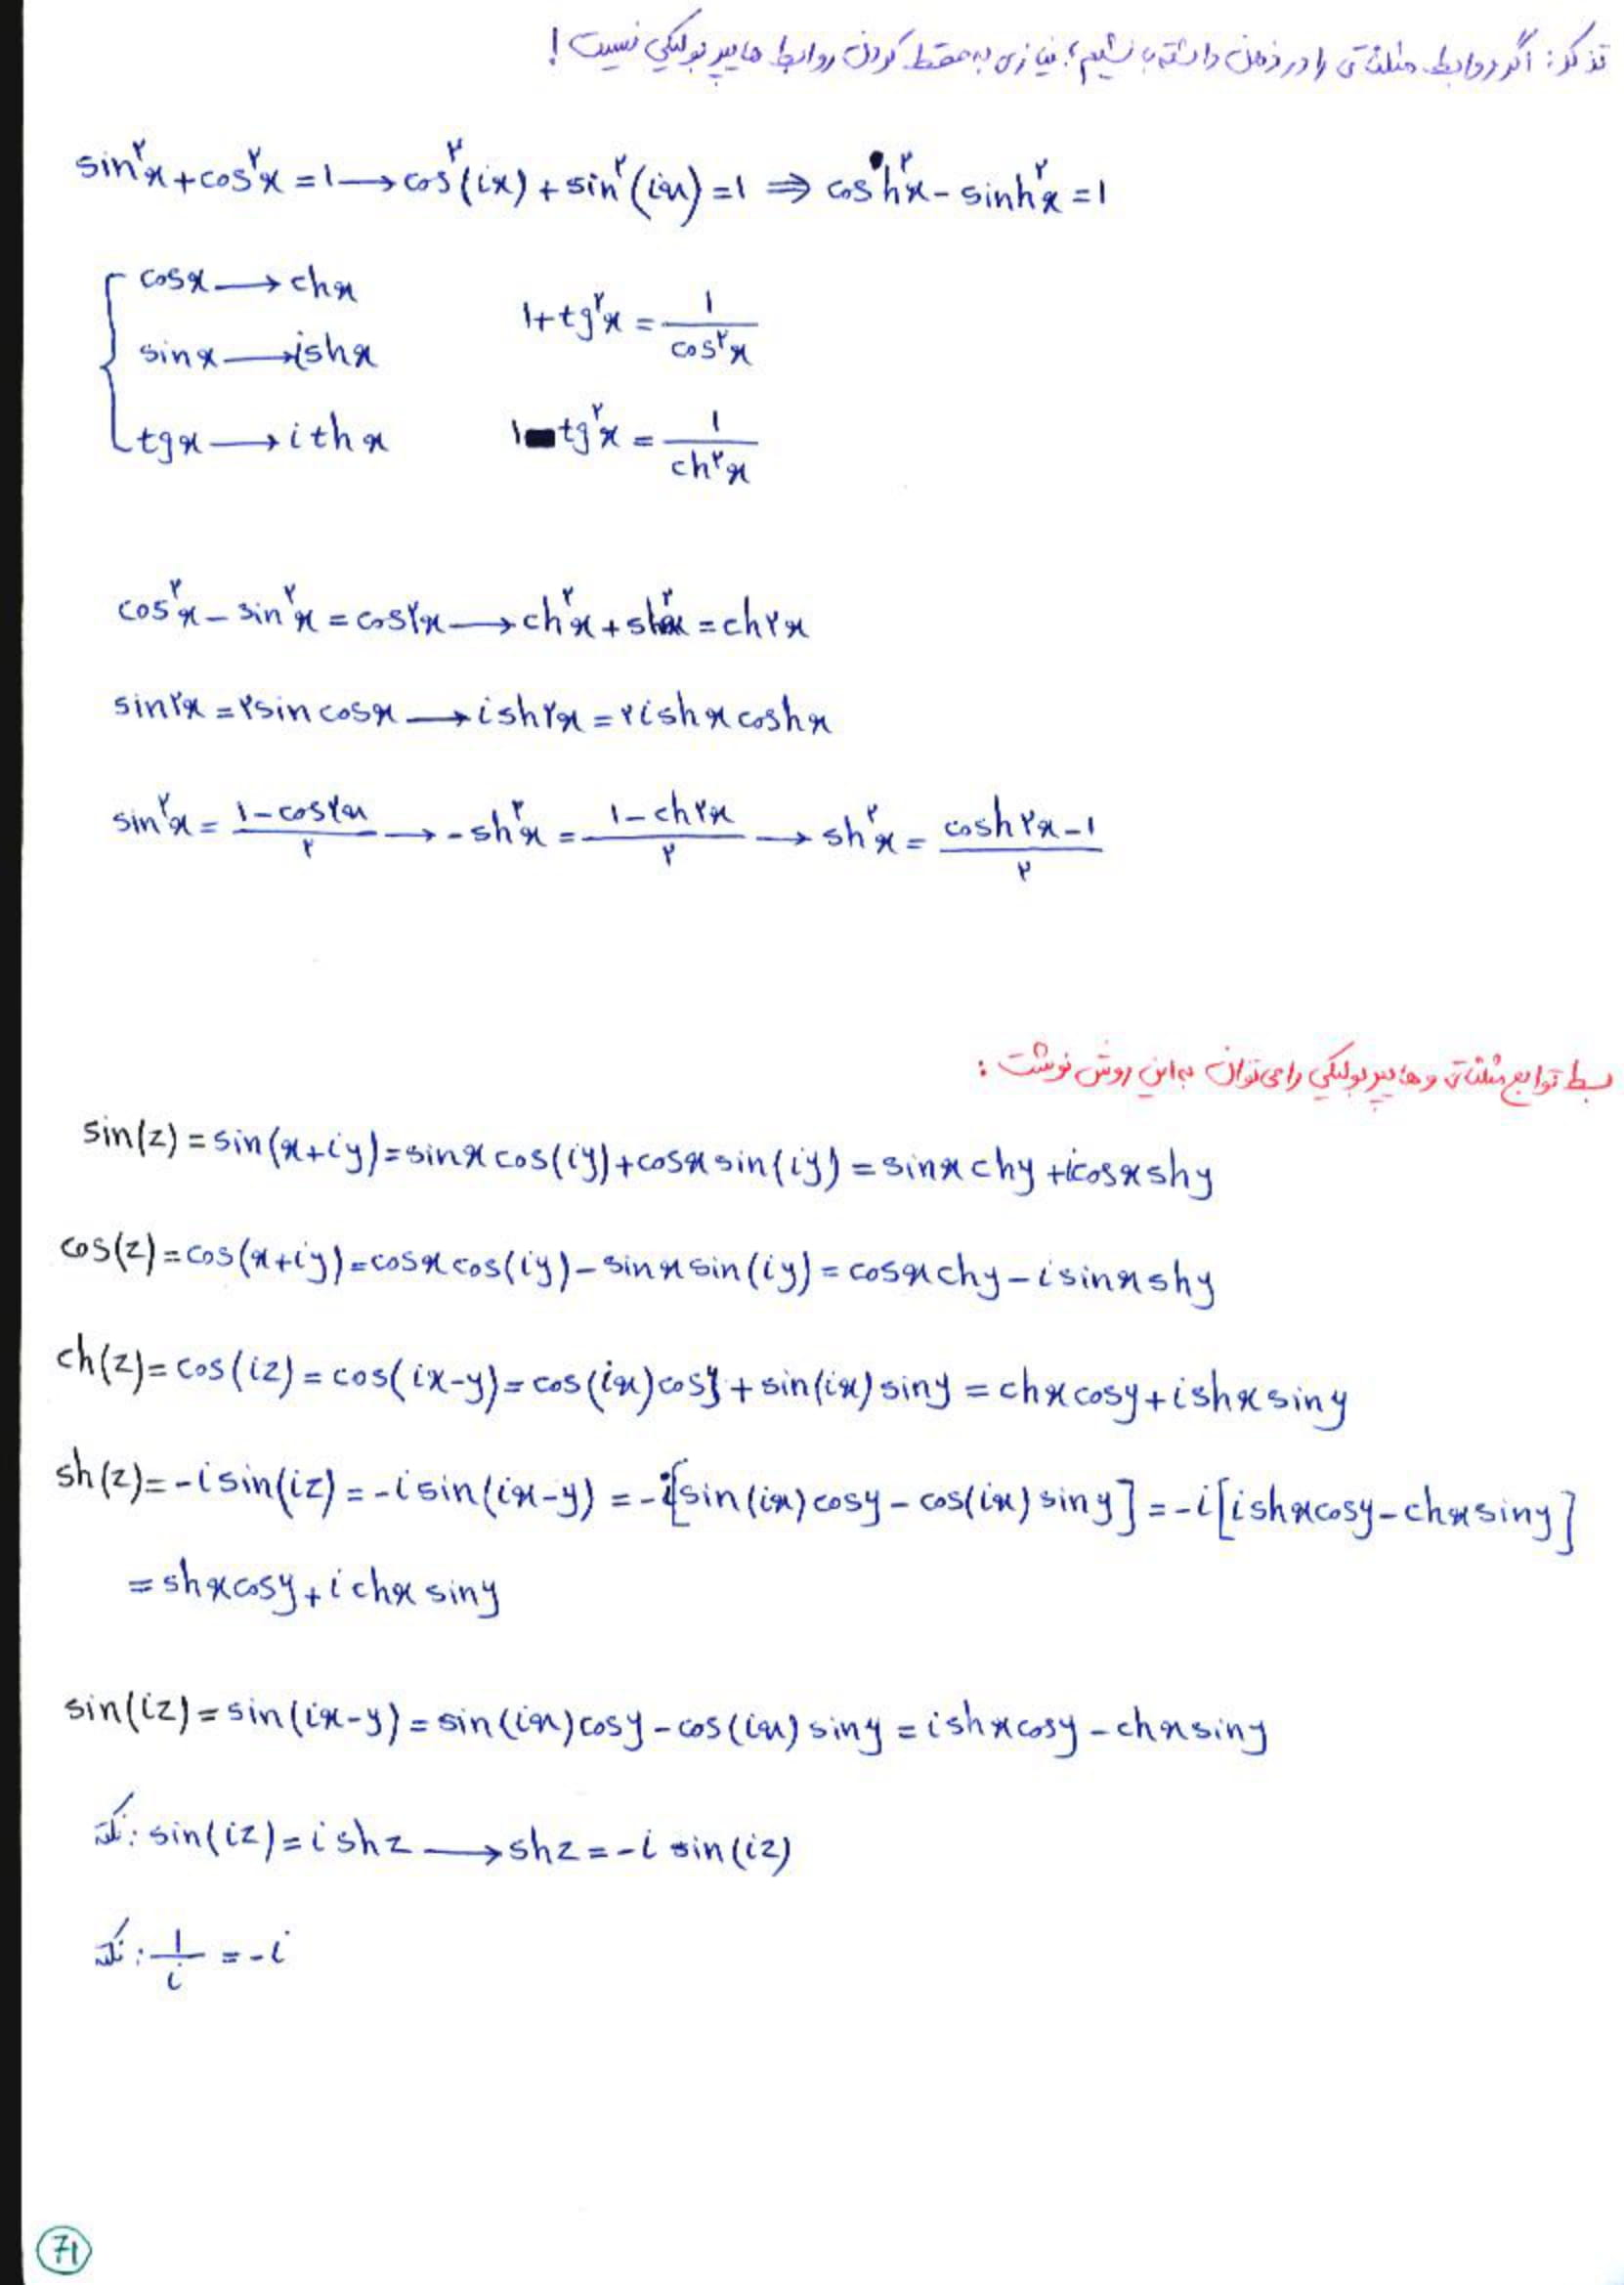 تذکر: اگر روابط مثلثاتی را در ذهن داشته باشیم؛ نیازی به حفظ کردن روابط هایپربولیکی نیست!
sin²x + cos²x = 1 → cos²(ix) + sin²(ix) = 1 ⇒ cosh²x - sinh²x = 1
cosx → chx
1 + tg²x = 1/cos²x
sinx → ishx
tgx → ithx
1 - tg²x = 1/ch²x
cos²x - sin²x = cos۲x → ch²x + sh²x = ch۲x
sin۲x = ۲sin cosx → ish۲x = ۲ishx coshx
sin²x = (1 - cos۲x)/۲ → -sh²x = (1 - ch۲x)/۲ → sh²x = (cosh۲x - 1)/۲
بسط توابع مثلثاتی و هایپربولیکی را می‌توان به این روش نوشت:
sin(z) = sin(x+iy) = sinx cos(iy) + cosx sin(iy) = sinx chy + icosx shy
cos(z) = cos(x+iy) = cosx cos(iy) - sinx sin(iy) = cosx chy - isinx shy
ch(z) = cos(iz) = cos(ix-y) = cos(ix)cosy + sin(ix) siny = chx cosy + ishx siny
sh(z) = -isin(iz) = -isin(ix-y) = -i[sin(ix)cosy - cos(ix) siny] = -i[ishxcosy - chxsiny]
= shxcosy + ichx siny
sin(iz) = sin(ix-y) = sin(ix)cosy - cos(ix) siny = ishxcosy - chxsiny
نکته: sin(iz) = i shz → shz = -i sin(iz)
نکته: 1/i = -i
71